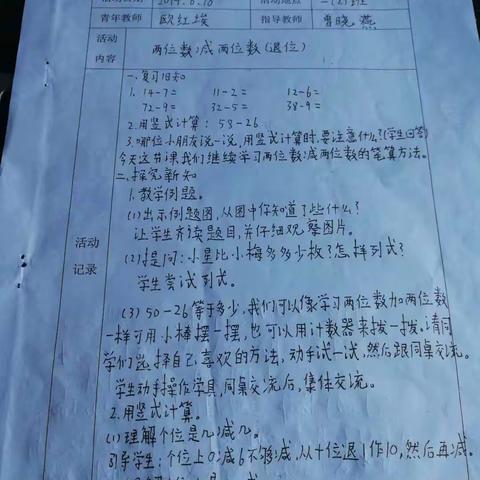 活动日期 2019.6.18 活动地点 一(2)班
青年教师 欧红埃 指导教师 曹晓燕
活动内容 两位数减两位数(退位)
活动记录
一、复习旧知
1. 14-7= 11-2= 12-6=
72-9= 32-5= 38-9=
2.用竖式计算: 58-26
3.哪位小朋友说一说,用竖式计算时,要注意什么?(学生回答)
今天这节课我们继续学习两位数减两位数的笔算方法。
二、探究新知
1.教学例题。
(1)出示例题图,从图中你知道了些什么?
让学生齐读题目,并仔细观察图片。
(2)提问:小星比小梅多多少枚?怎样列式?
学生尝试列式。
(3) 50-26等于多少,我们可以像学习两位数加两位数
一样可用小棒摆一摆,也可以用计数器来拨一拨。请同
学们选择自己喜欢的方法,动手试一试,然后跟同桌交流。
学生动手操作学具,同桌交流后,集体交流。
2.用竖式计算。
(1)理解个位是几减几。
引导学生:个位上0减6不够减,从十位退1作10,然后再减。